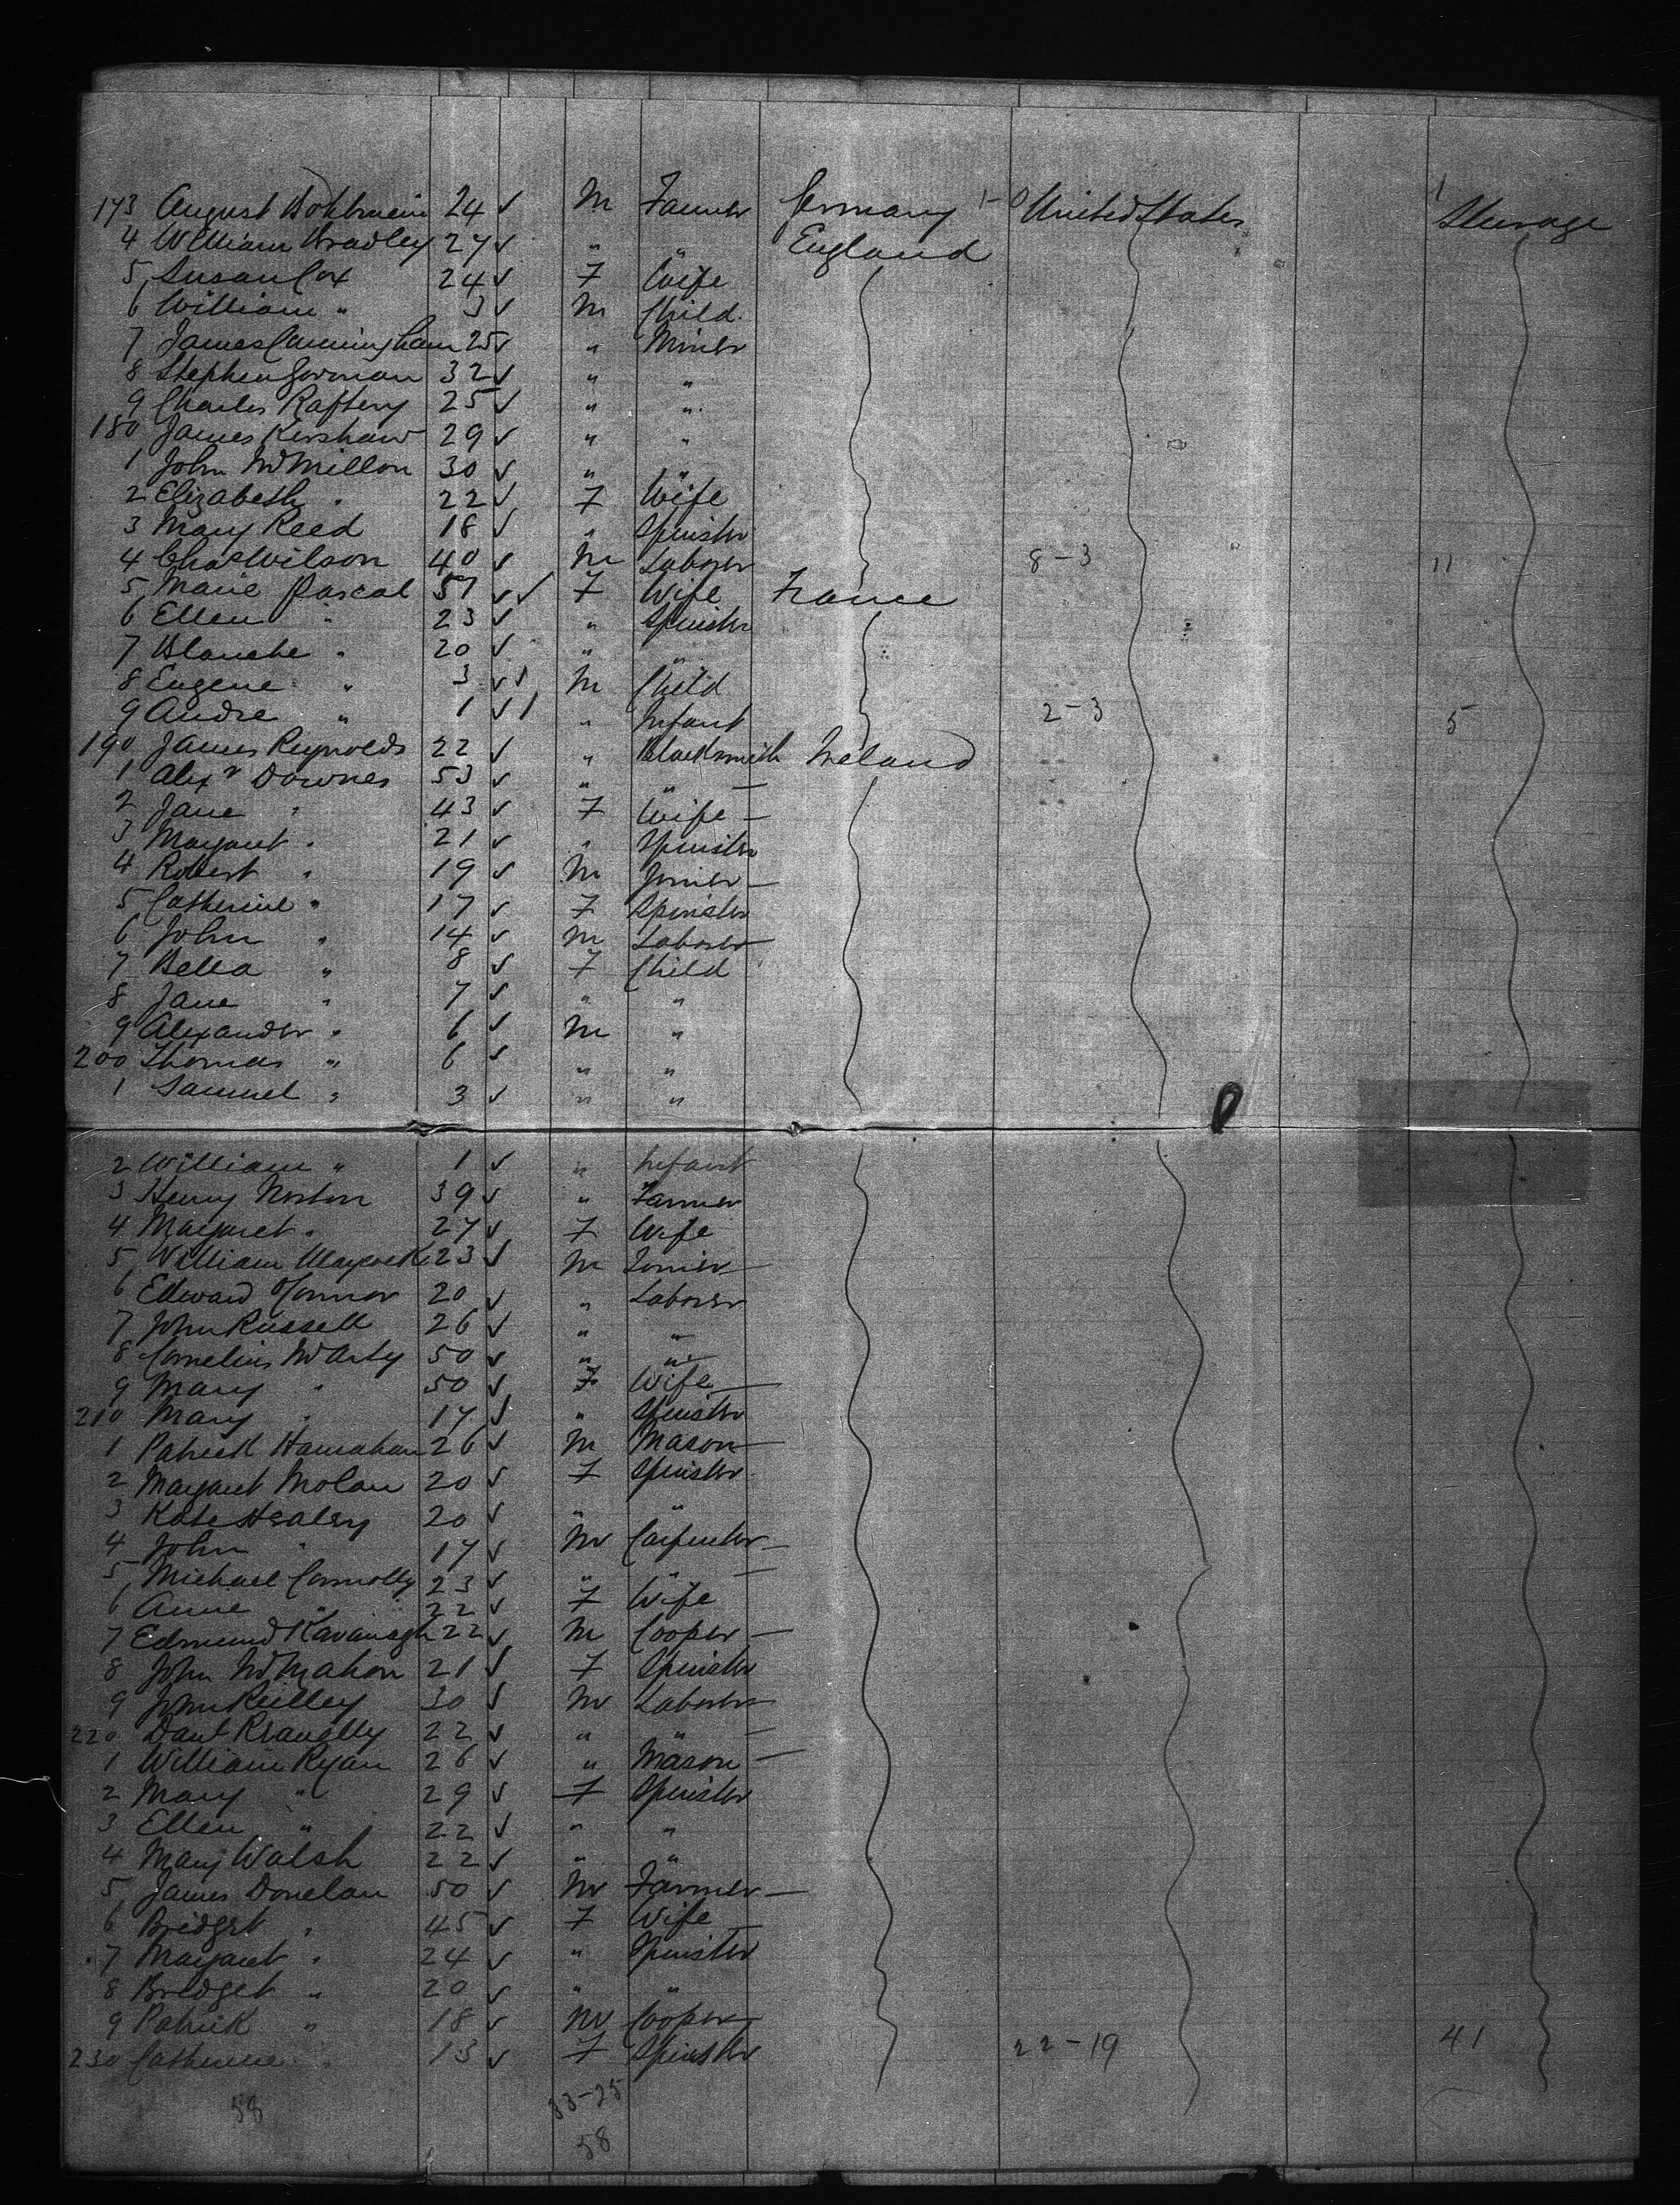 173 August 24 ✓ M Farmer Germany 1-0 United States 1 Steerage
4 William Bradley 27 ✓ " " England
5 Susan Cox 24 ✓ F Wife
6 William " 3 ✓ M Child
7 James Cunningham 25 ✓ " Miner
8 Stephen Gorman 32 ✓ " "
9 Charles Raftery 25 ✓ " "
180 James Kershaw 29 ✓ " "
1 John McMillon 30 ✓ " "
2 Elizabeth " 22 ✓ F Wife
3 Mary Reed 18 ✓ " Spinster
4 Chas Wilson 40 ✓ M Laborer 8-3 11
5 Marie Pascal 57 ✓✓ F Wife France
6 Ellen " 23 ✓ " Spinster
7 Blanche " 20 ✓ " "
8 Eugene " 3 ✓✓ M Child
9 Andre " 1 ✓ / " Infant 2-3 5
190 James Reynolds 22 ✓ " Blacksmith Ireland
1 Alexr Downes 53 ✓ " "
2 Jane " 43 ✓ F Wife
3 Margaret " 21 ✓ " Spinster
4 Robert " 19 ✓ M Joiner
5 Catherine " 17 ✓ F Spinster
6 John " 14 ✓ M Laborer
7 Bella " 8 ✓ F Child
8 Jane " 7 ✓ " "
9 Alexander " 6 ✓ M "
200 Thomas " 6 ✓ " "
1 Samuel " 3 ✓ " "
2 William " 1 ✓ " Infant
3 Henry Norton 39 ✓ " Farmer
4 Margaret " 27 ✓ F Wife
5 William Maycock 23 ✓ M Joiner
6 Edward OConnor 20 ✓ " Laborer
7 John Russell 26 ✓ " "
8 Cornelius McArty 50 ✓ " "
9 Mary " 50 ✓ F Wife
210 Mary " 17 ✓ " Spinster
1 Patrick Hanrahan 26 ✓ M Mason
2 Margaret Molan 20 ✓ F Spinster
3 Kate Healey 20 ✓ " "
4 John " 17 ✓ M Carpenter
5 Michael Connolly 23 ✓ " "
6 Anne " 22 ✓ F Wife
7 Edmund Kavanagh 22 ✓ M Cooper
8 John McMahon 21 ✓ F Spinster
9 John Reilley 30 ✓ M Laborer
220 Danl 22 ✓ " "
1 William Ryan 26 ✓ " Mason
2 Mary " 29 ✓ F Spinster
3 Ellen " 22 ✓ " "
4 Mary Walsh 22 ✓ " "
5 James Donelan 50 ✓ M Farmer
6 Bridget " 45 ✓ F Wife
7 Margaret " 24 ✓ " Spinster
8 Bridget " 20 ✓ " "
9 Patrick " 18 ✓ M Cooper
230 Catherine " 13 ✓ F Spinster 22-19 41
58 33-25
58